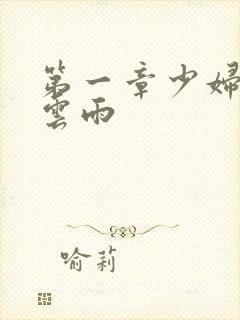 第一章少婦
雲雨
喻莉